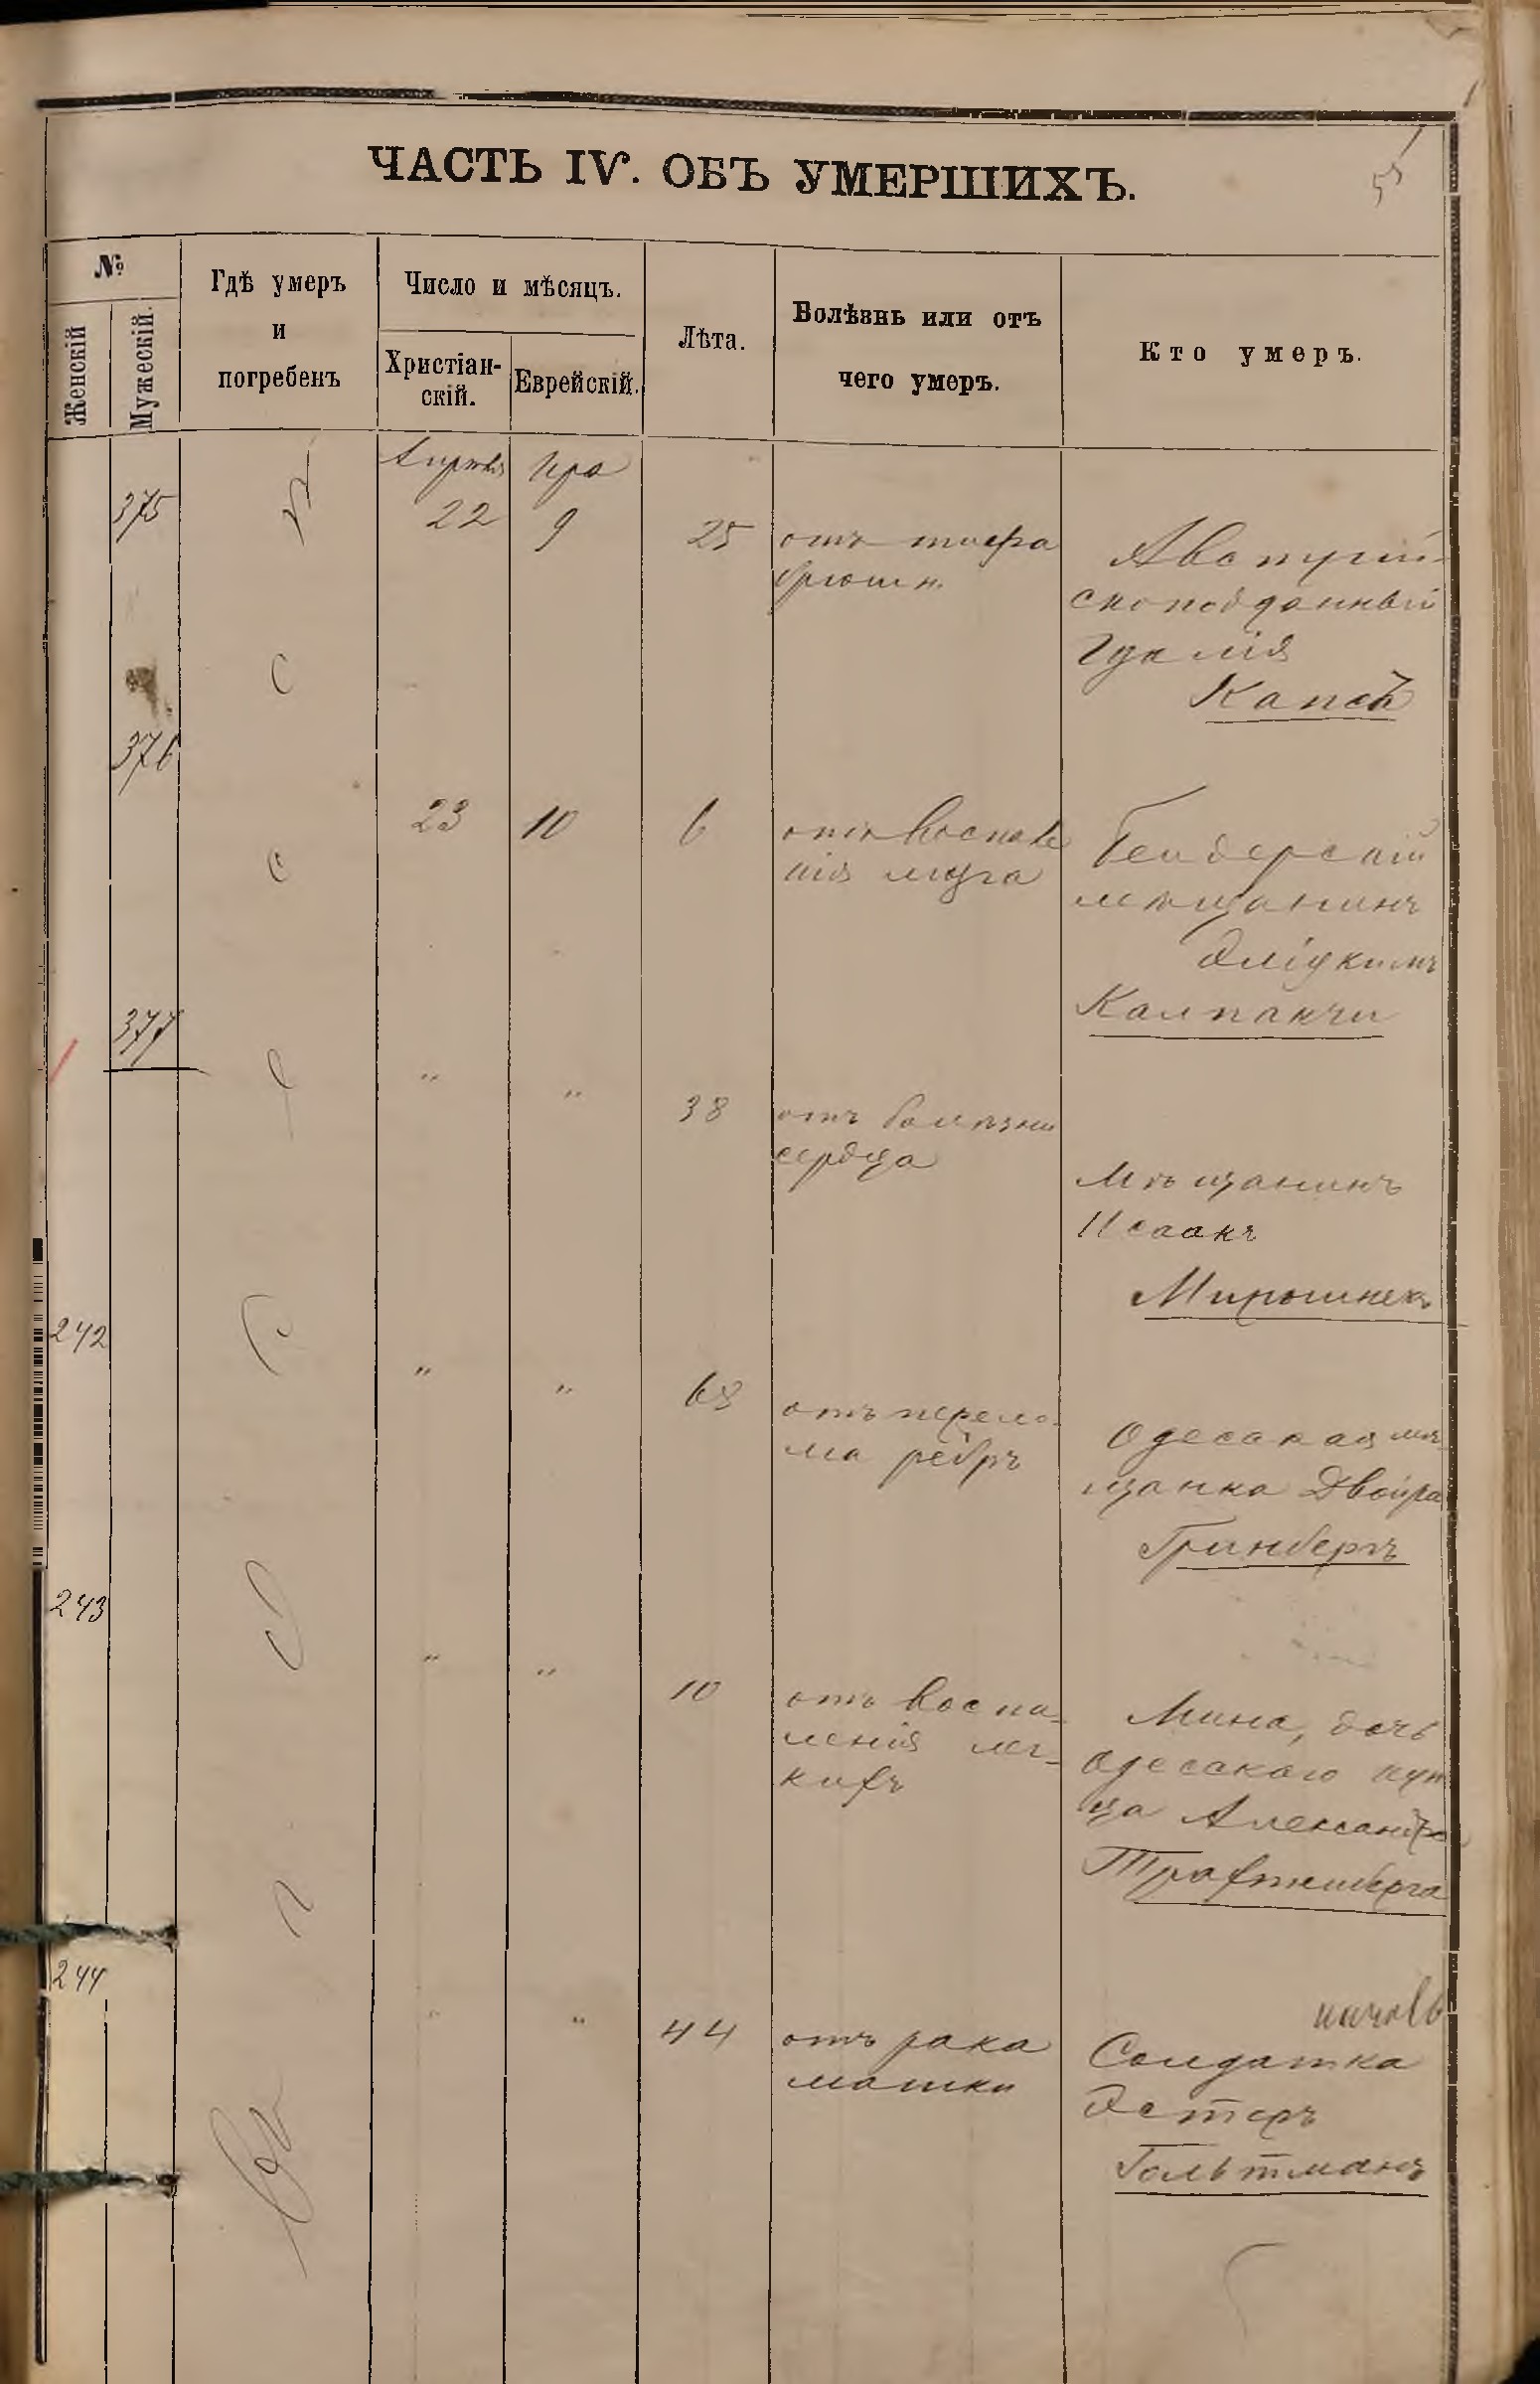 ЧАСТЬ IV. ОБЪ УМЕРШИХЪ.
№
Женскій
Мужескій.
Гдѣ умеръ
и
погребенъ
Число и мѣсяцъ.
Христіан-
скій.
Еврейскій.
Лѣта.
Болѣзнь или отъ
чего умеръ.
Кто умеръ.
Апрѣля
Іра
375
22
9
25
отъ тифа
брюшн.
Австрій-
скоподданный
Гдалія
Капсъ
376
23
10
6
отъ воспале
нія мозга
Бендерскій
мѣщанинъ
Эліукимъ
Калпакчи
377
"
"
38
отъ болѣзни
сердца
Мѣщанинъ
Исаакъ
Мирошнекъ
242
"
"
68
отъ перело-
ма рёбръ
Одесская мѣ-
щанка Двойра
Гринбергъ
243
"
"
10
отъ воспа-
ленія лег-
кихъ
Мина, дочь
Одесскаго куп
ца Александра
Трахтенберга
244
"
"
44
отъ рака
матки
Солдатка
Эстеръ
Гольтманъ